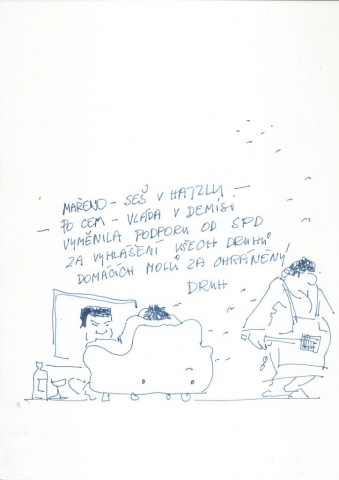 MAŘENO – SEŠ V HAJZLU –
– PO ČEM – VLÁDA V DEMISI
VYMĚNILA PODPORU OD SPD
ZA VYHLÁŠENÍ VŠECH DRUHŮ
DOMÁCÍCH MOLŮ ZA CHRÁNĚNÝ
DRUH